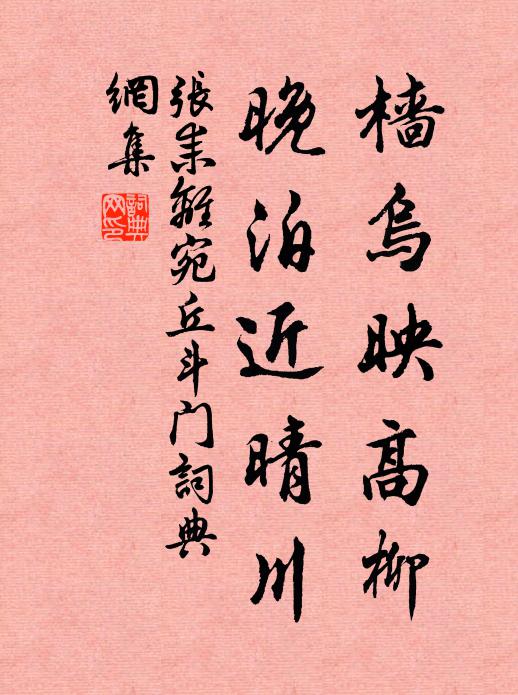 檣烏映高柳
晚泊近晴川
張耒離宛丘斗門詞典
網集
詞典
网印